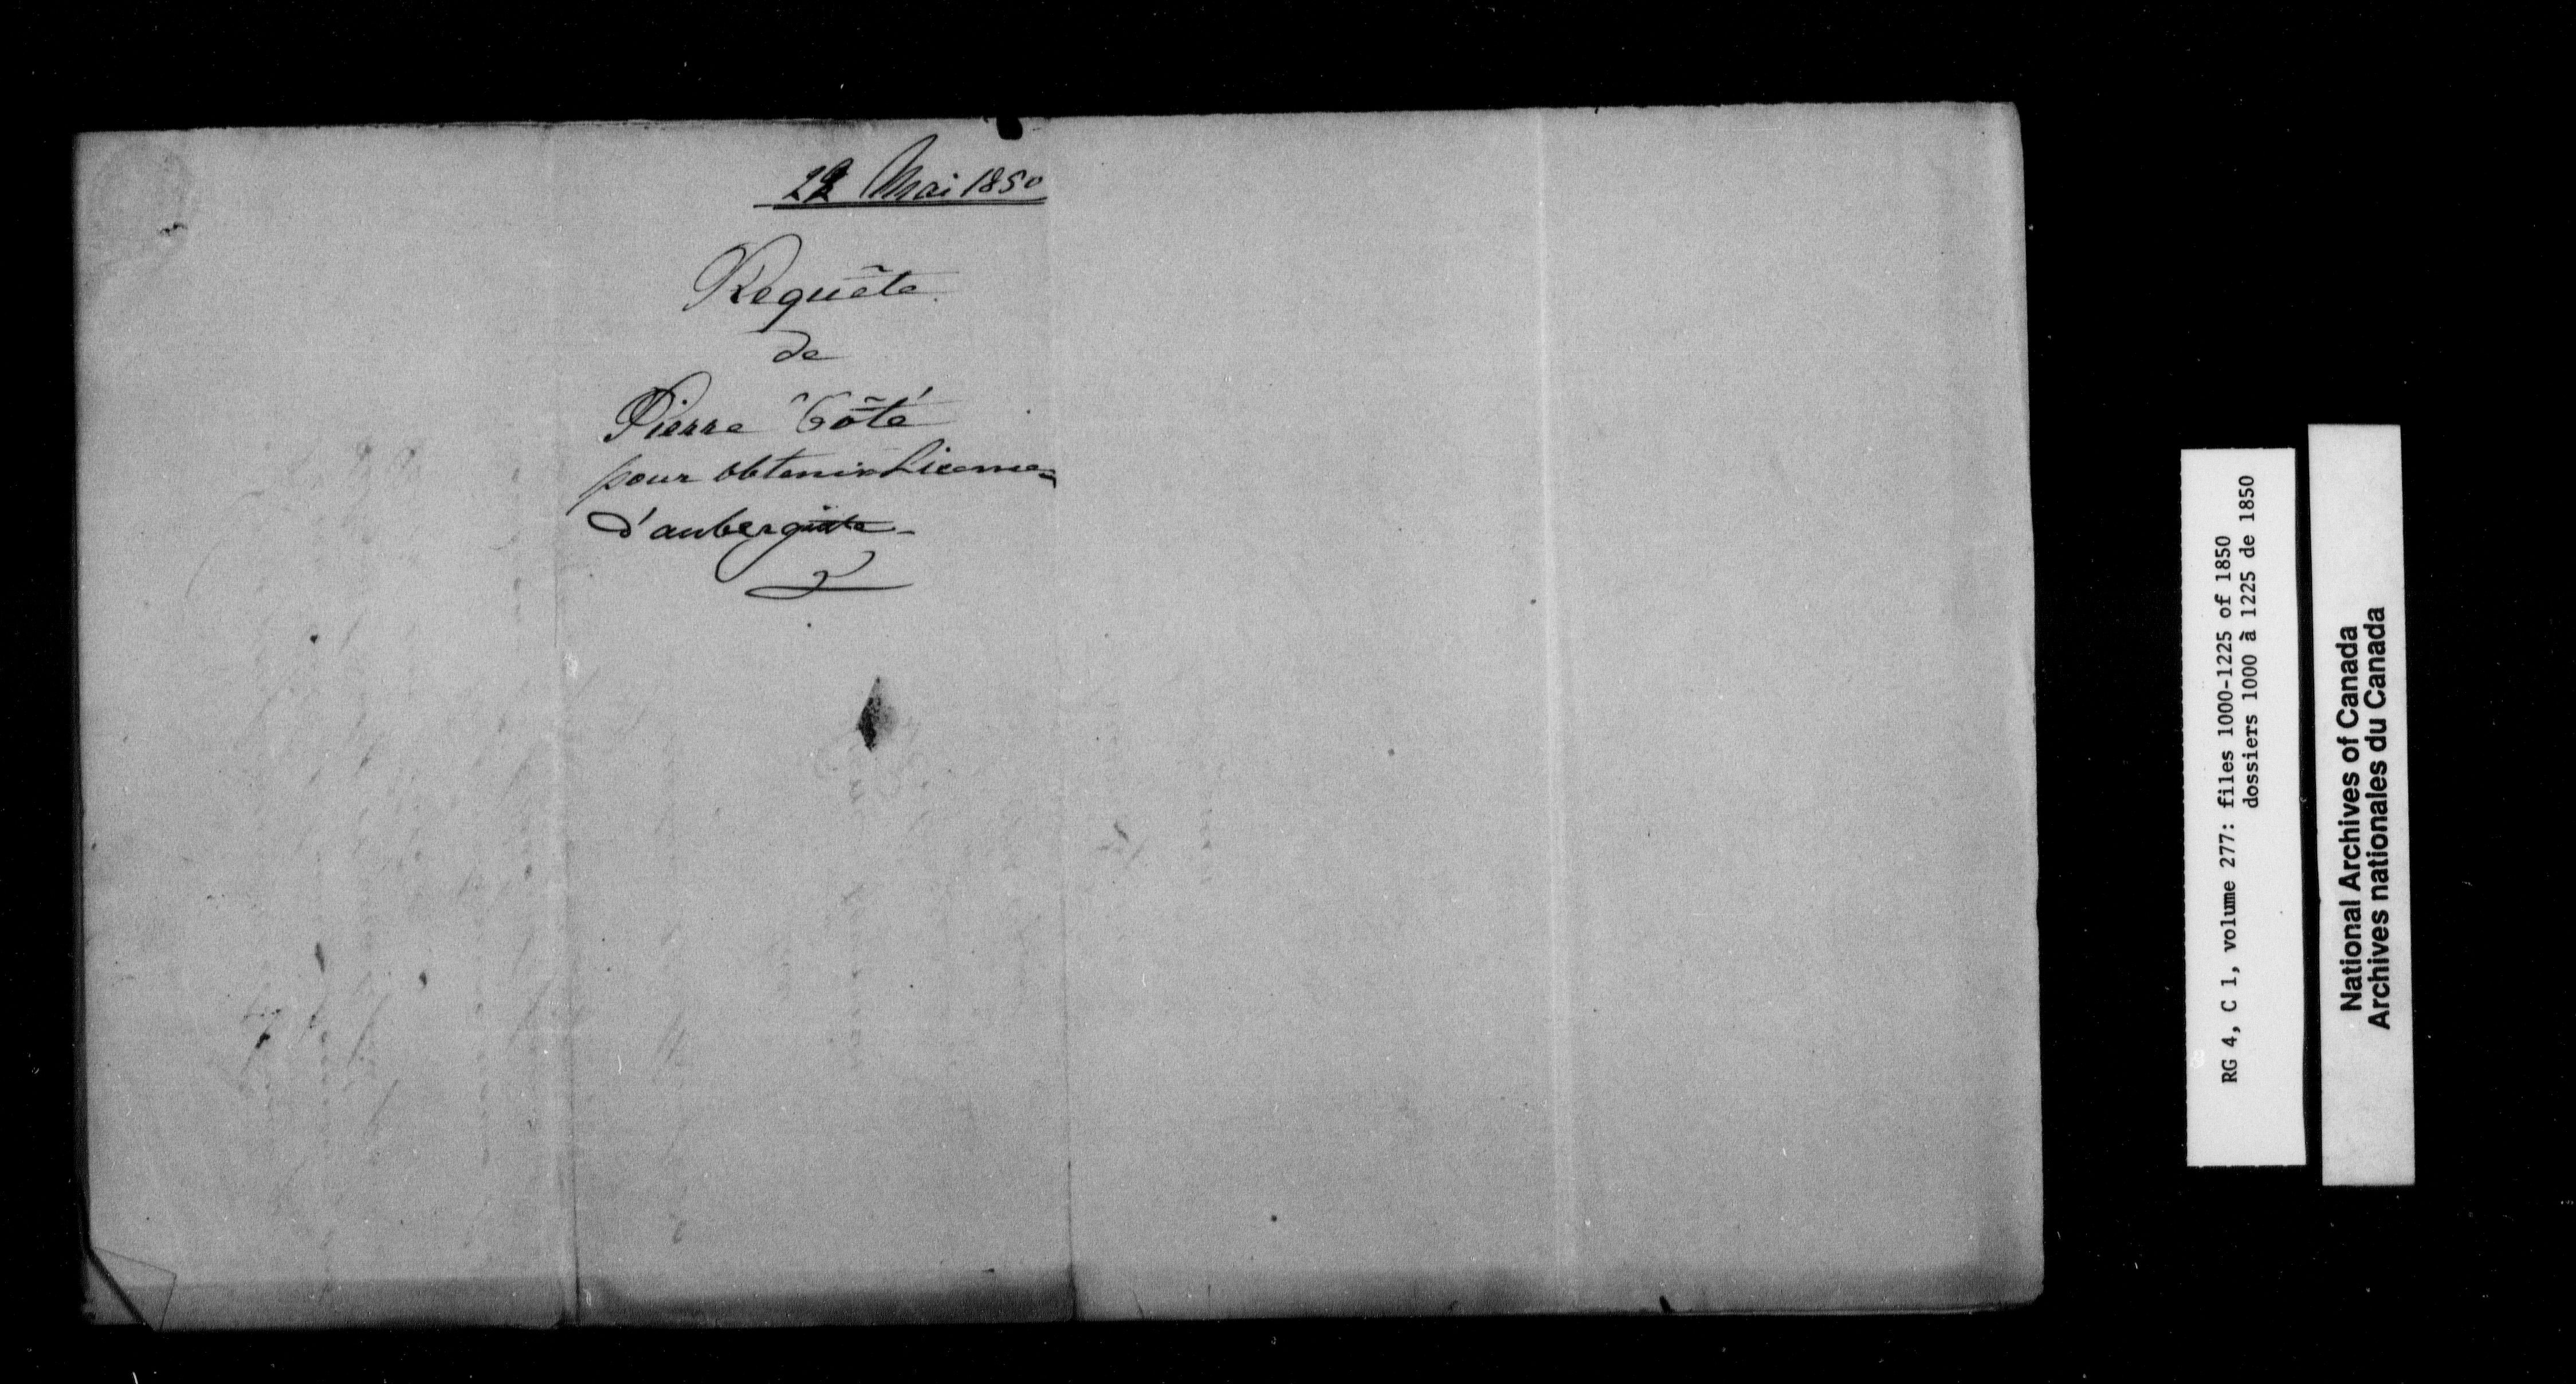 22 Mai 1850
Requête
de
Pierre Côté
pour obtenir Licence
d'aubergiste
RG 4, C 1, volume 277: files 1000-1225 of 1850
dossiers 1000 à 1225 de 1850
National Archives of Canada
Archives nationales du Canada